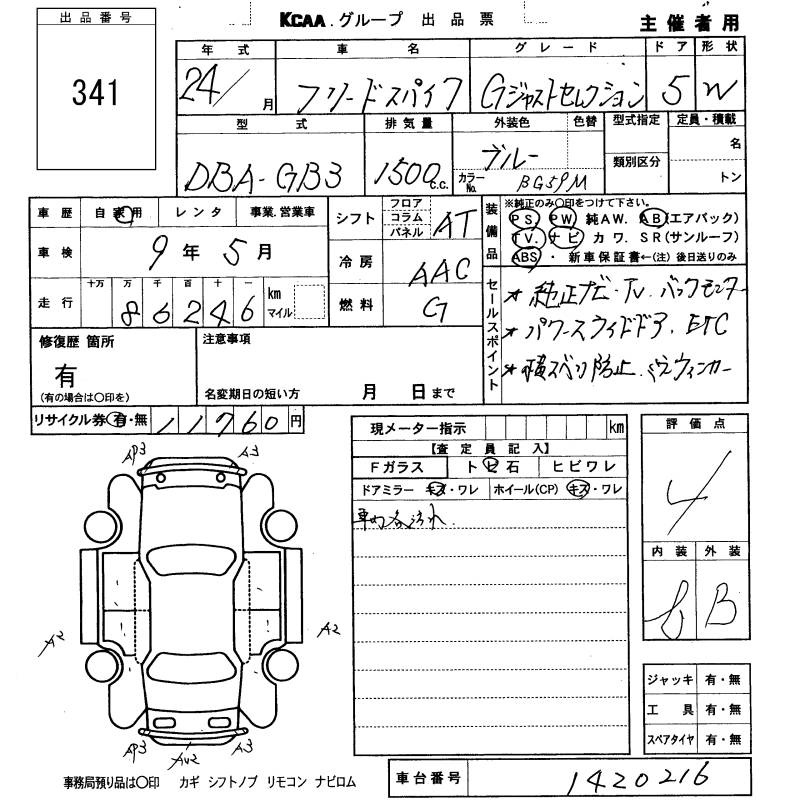 出品番号
341
KCAA.グループ 出品票
主催者用
年式 車名 グレード ドア 形状
24/ 月 フリードスパイク Gジャストセレクション 5 W
型式 排気量 外装色 色替 型式指定 定員・積載
DBA-GB3 1500 c.c. ブルー 名
カラーNo. BG59M 類別区分 トン
車歴 自家用 レンタ 事業.営業車
車検 9年5月
走行 十万 万 千 百 十 一
86246 km マイル
シフト フロア コラム パネル AT
冷房 AAC
燃料 G
装備品
※純正のみ〇印をつけて下さい。
PS PW 純AW. AB(エアバック)
TV. ナビ カワ. SR(サンルーフ)
ABS ・ 新車保証書←(注)後日送りのみ
セールスポイント
★純正ナビ・TV. バックモニター
★パワースライドドア. ETC
★横スベリ防止.ミラーウィンカー
修復歴 箇所
有
(有の場合は〇印を)
注意事項
名変期日の短い方 月 日まで
リサイクル券 有・無 11760円
現メーター指示 km
【査定員記入】
Fガラス トビ石 ヒビワレ
ドアミラー キズ・ワレ ホイール(CP) キズ・ワレ
車内各汚れ.
評価点
4
内装 外装
B
AP3 A3
A2 A2
AP3 AU2 A3
ジャッキ 有・無
工具 有・無
スペアタイヤ 有・無
事務局預り品は〇印 カギ シフトノブ リモコン ナビロム
車台番号 1420216